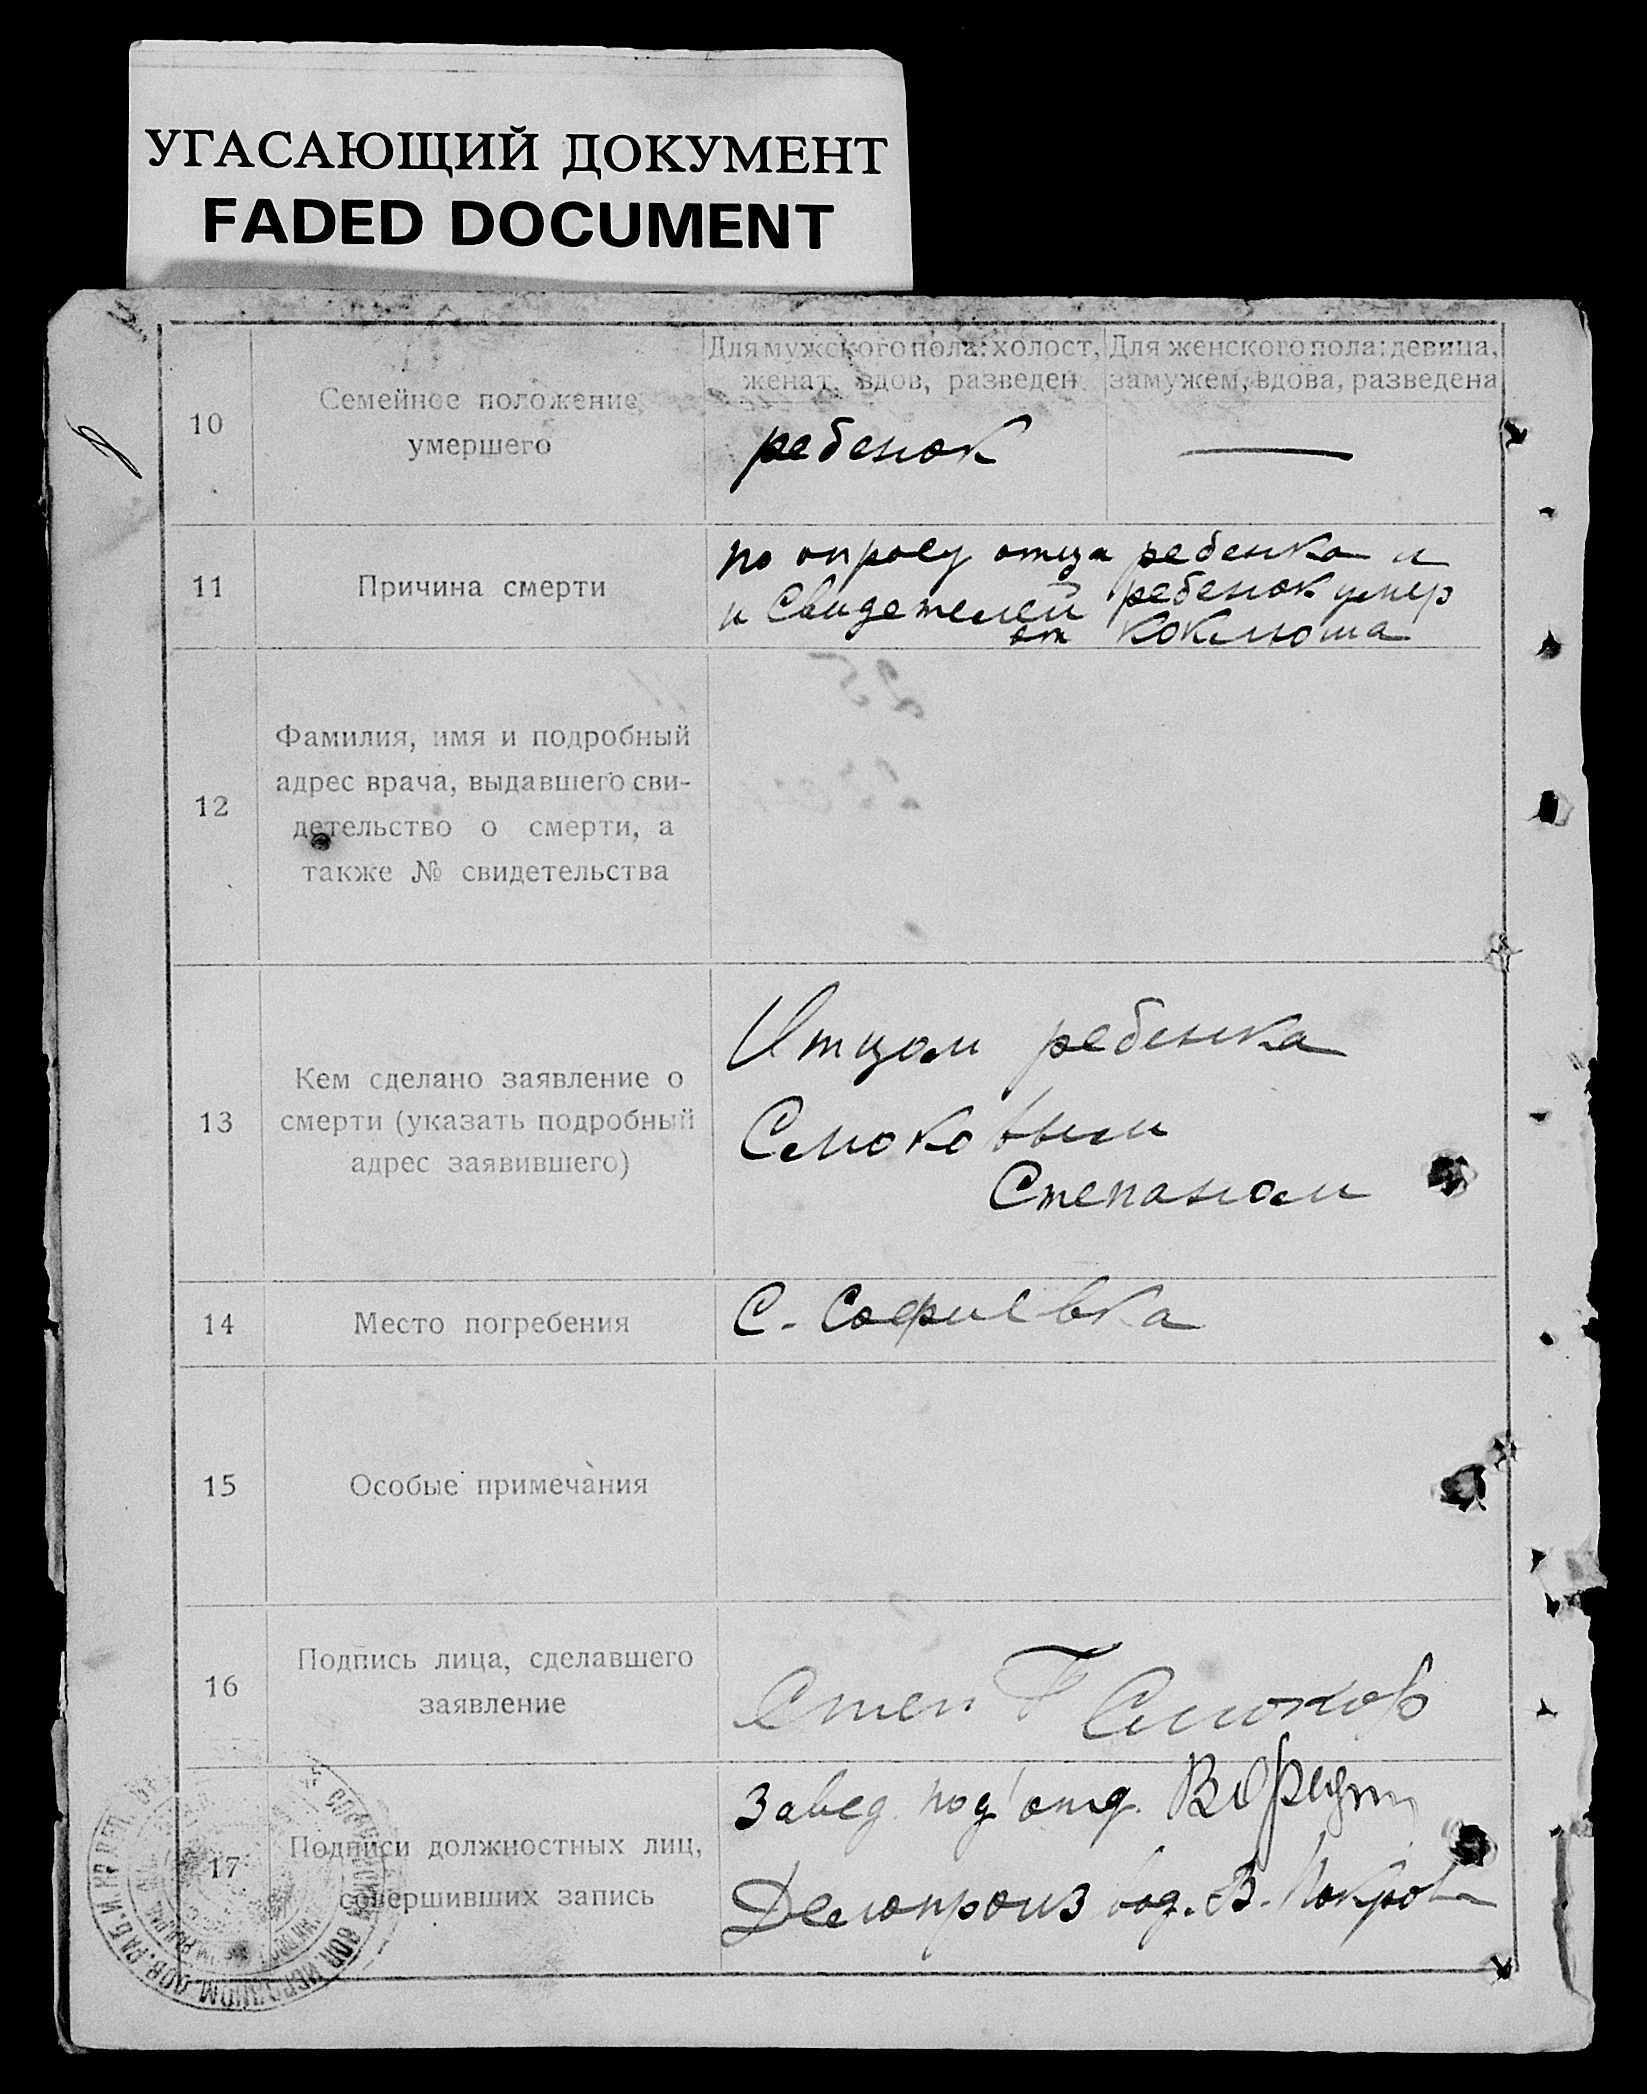 УГАСАЮЩИЙ ДОКУМЕНТ
FADED DOCUMENT
10
Семейное положение
умершего
Для мужского пола: холост,
женат, вдов, разведен
Для женского пола: девица,
замужем, вдова, разведена
ребенок
—
11
Причина смерти
по опросу отца ребенка и
и Свидетелей ребенок умер
от коклюша
12
Фамилия, имя и подробный
адрес врача, выдавшего сви-
детельство о смерти, а
также № свидетельства
13
Кем сделано заявление о
смерти (указать подробный
адрес заявившего)
Отцом ребенка
Смоковым
Степаном
14
Место погребения
С. Софиевка
15
Особые примечания
16
Подпись лица, сделавшего
заявление
Степ. Смоков
17
Подписи должностных лиц,
совершивших запись
Завед. под'отд.
Делопроизвод. В.